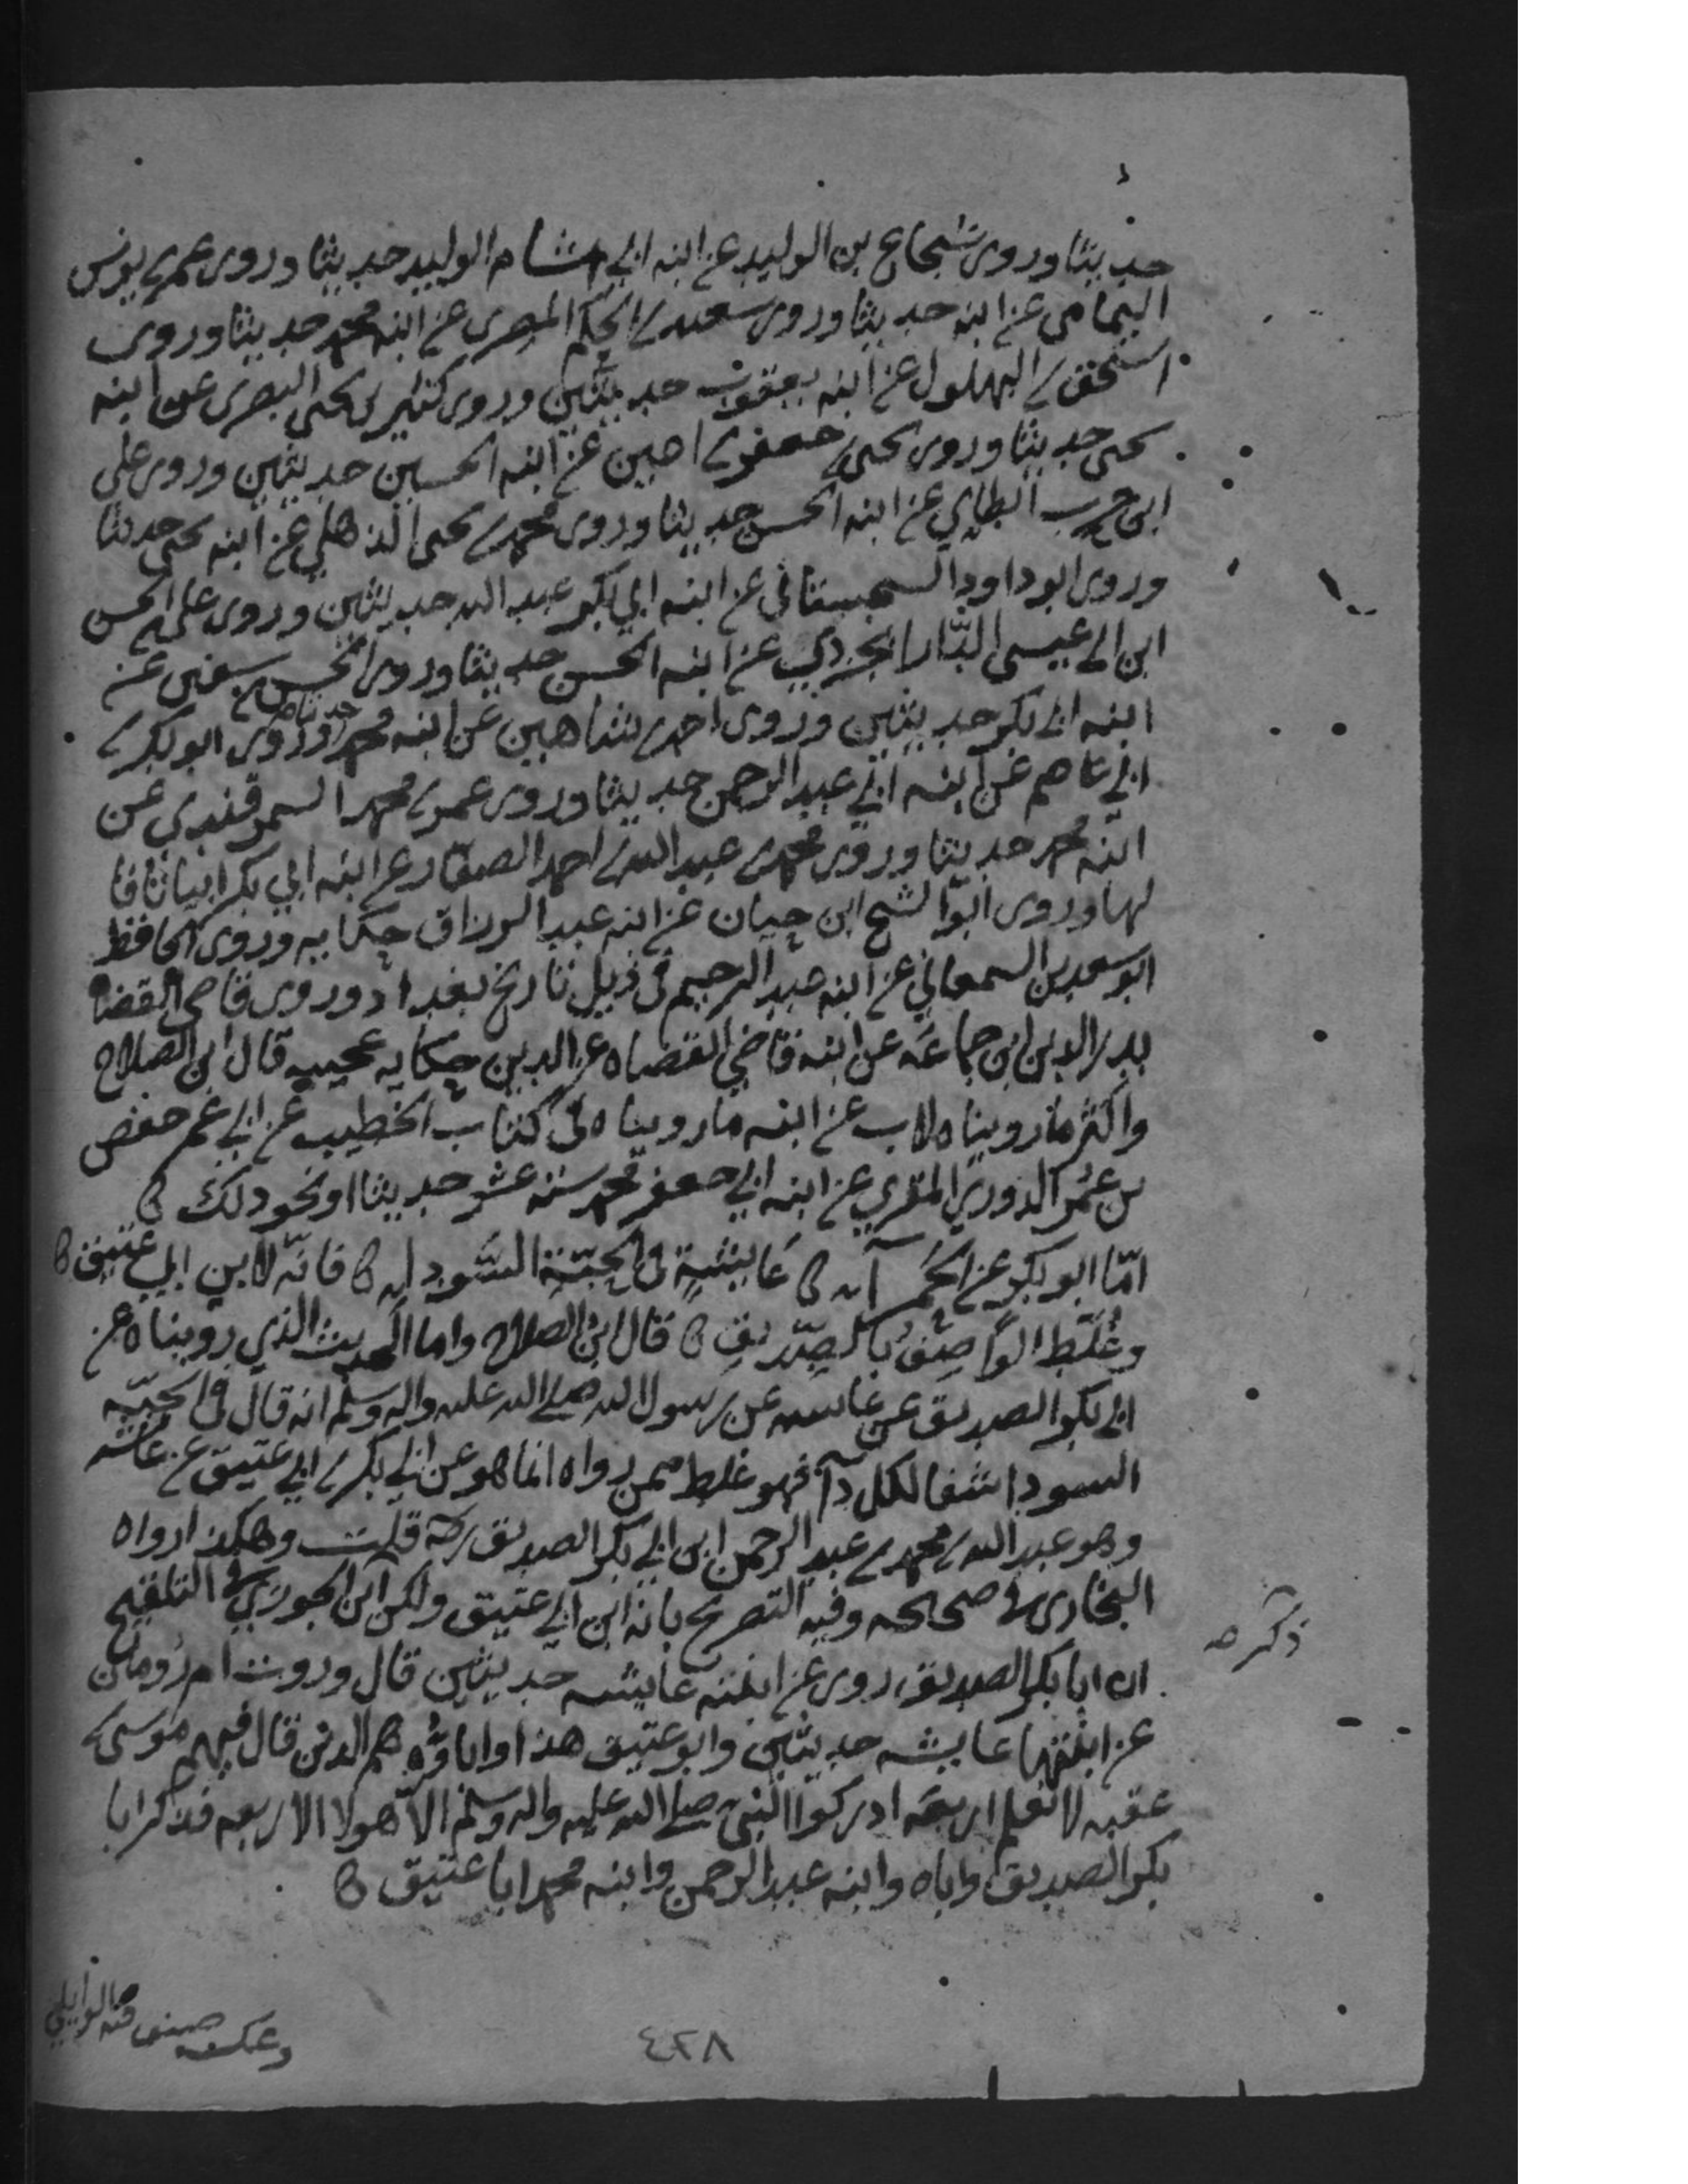 حديثا وروى شجاع بن الوليد عن ابنه ابي هشام الوليد حديثا وروى عمر بن يونس
اليمامي عن ابنه حديثا وروى سعيد بن الحكم المصري عن ابنه محمد حديثا وروى
اسحق بن البهلول عن ابنه يعقوب حديثين وروى كثير بن يحيى البصرى عن ابنه
يحيى حديثا وروى يحيى بن جعفر بن اعين عن ابنه الحسين حديثين وروى على
ابن حرب الطاي عن ابنه الحسن حديثا وروى محمد بن يحيى الذهلي عن ابنه يحيى حديثا
وروى ابو داود السجستاني عن ابنه ابي بكر عبد الله حديثين وروى على بن الحسن
ابن ابي عيسى الدارابجردي عن ابنه الحسن حديثا وروى الحسن بن سفين عن
ابنه ابي بكر حديثين وروى احمد بن شاهين عن ابنه محمد حديثا وروى ابو بكر بن
ابي عاصم عن ابنه ابي عبد الرحمن حديثا وروى عمر بن محمد السمرقندي عن
ابنه محمد حديثا وروى محمد بن عبد الله بن احمد الصفار عن ابنه ابي بكر ابياتا قا
لها وروى ابو الشيخ ابن حيان عن ابنه عبد الرزاق حكايه وروى الحافظ
ابو سعد بن السمعاني عن ابنه عبد الرحيم في ذيل تاريخ بغداد وروى قاضي القضاه
بدر الدين ابن جماعه عن ابنه قاضي القضاه عز الدين حكايه عجيبه قال ابن الصلاح
واكثر ما رويناه لاب عن ابنه ما رويناه في كتاب الخطيب عن ابي عمر حفص
بن عمر الدوري المقري عن ابنه ابي جعفر محمد سته عشر حديثا او نحو ذلك
امّا ابو بكر عن الحمراء عايشة في الحبّة السّوداء فانّه لابن ابي عتيق
وغُلّط الواصف بالصدّيق قال ابن الصلاح واما الحديث الذي رويناه عن
ابي بكر الصديق عن عائشه عن رسول الله صلى الله عليه واله وسلم انه قال في الحبّه
السودا شفا لكل دآ فهو غلط ممن رواه انما هو عن ابي بكر بن ابي عتيق عن عائشه
وهو عبد الله بن محمد بن عبد الرحمن ابن ابي بكر الصديق قلت وهكذا رواه
البخاري في صحيحه وفيه التصريح بانه ابن ابي عتيق ولكن ابن الجوزي في التلقيح
ذكر صه
ان ابا بكر الصديق روى عن ابنته عايشه حديثين قال وروت ام رومان
عن ابنتها عايشه حديثين وابو عتيق هذا واباؤه هم الذين قال فيهم موسى بن
عقبه لا نعلم اربعه ادركوا النبي صلى الله عليه واله وسلم الا هولا الاربعه فذكر ابا
بكر الصديق واباه وابنه عبد الرحمن وابنه محمد ابا عتيق
وعكسه صنف فيه الوايلي
٤٢٨